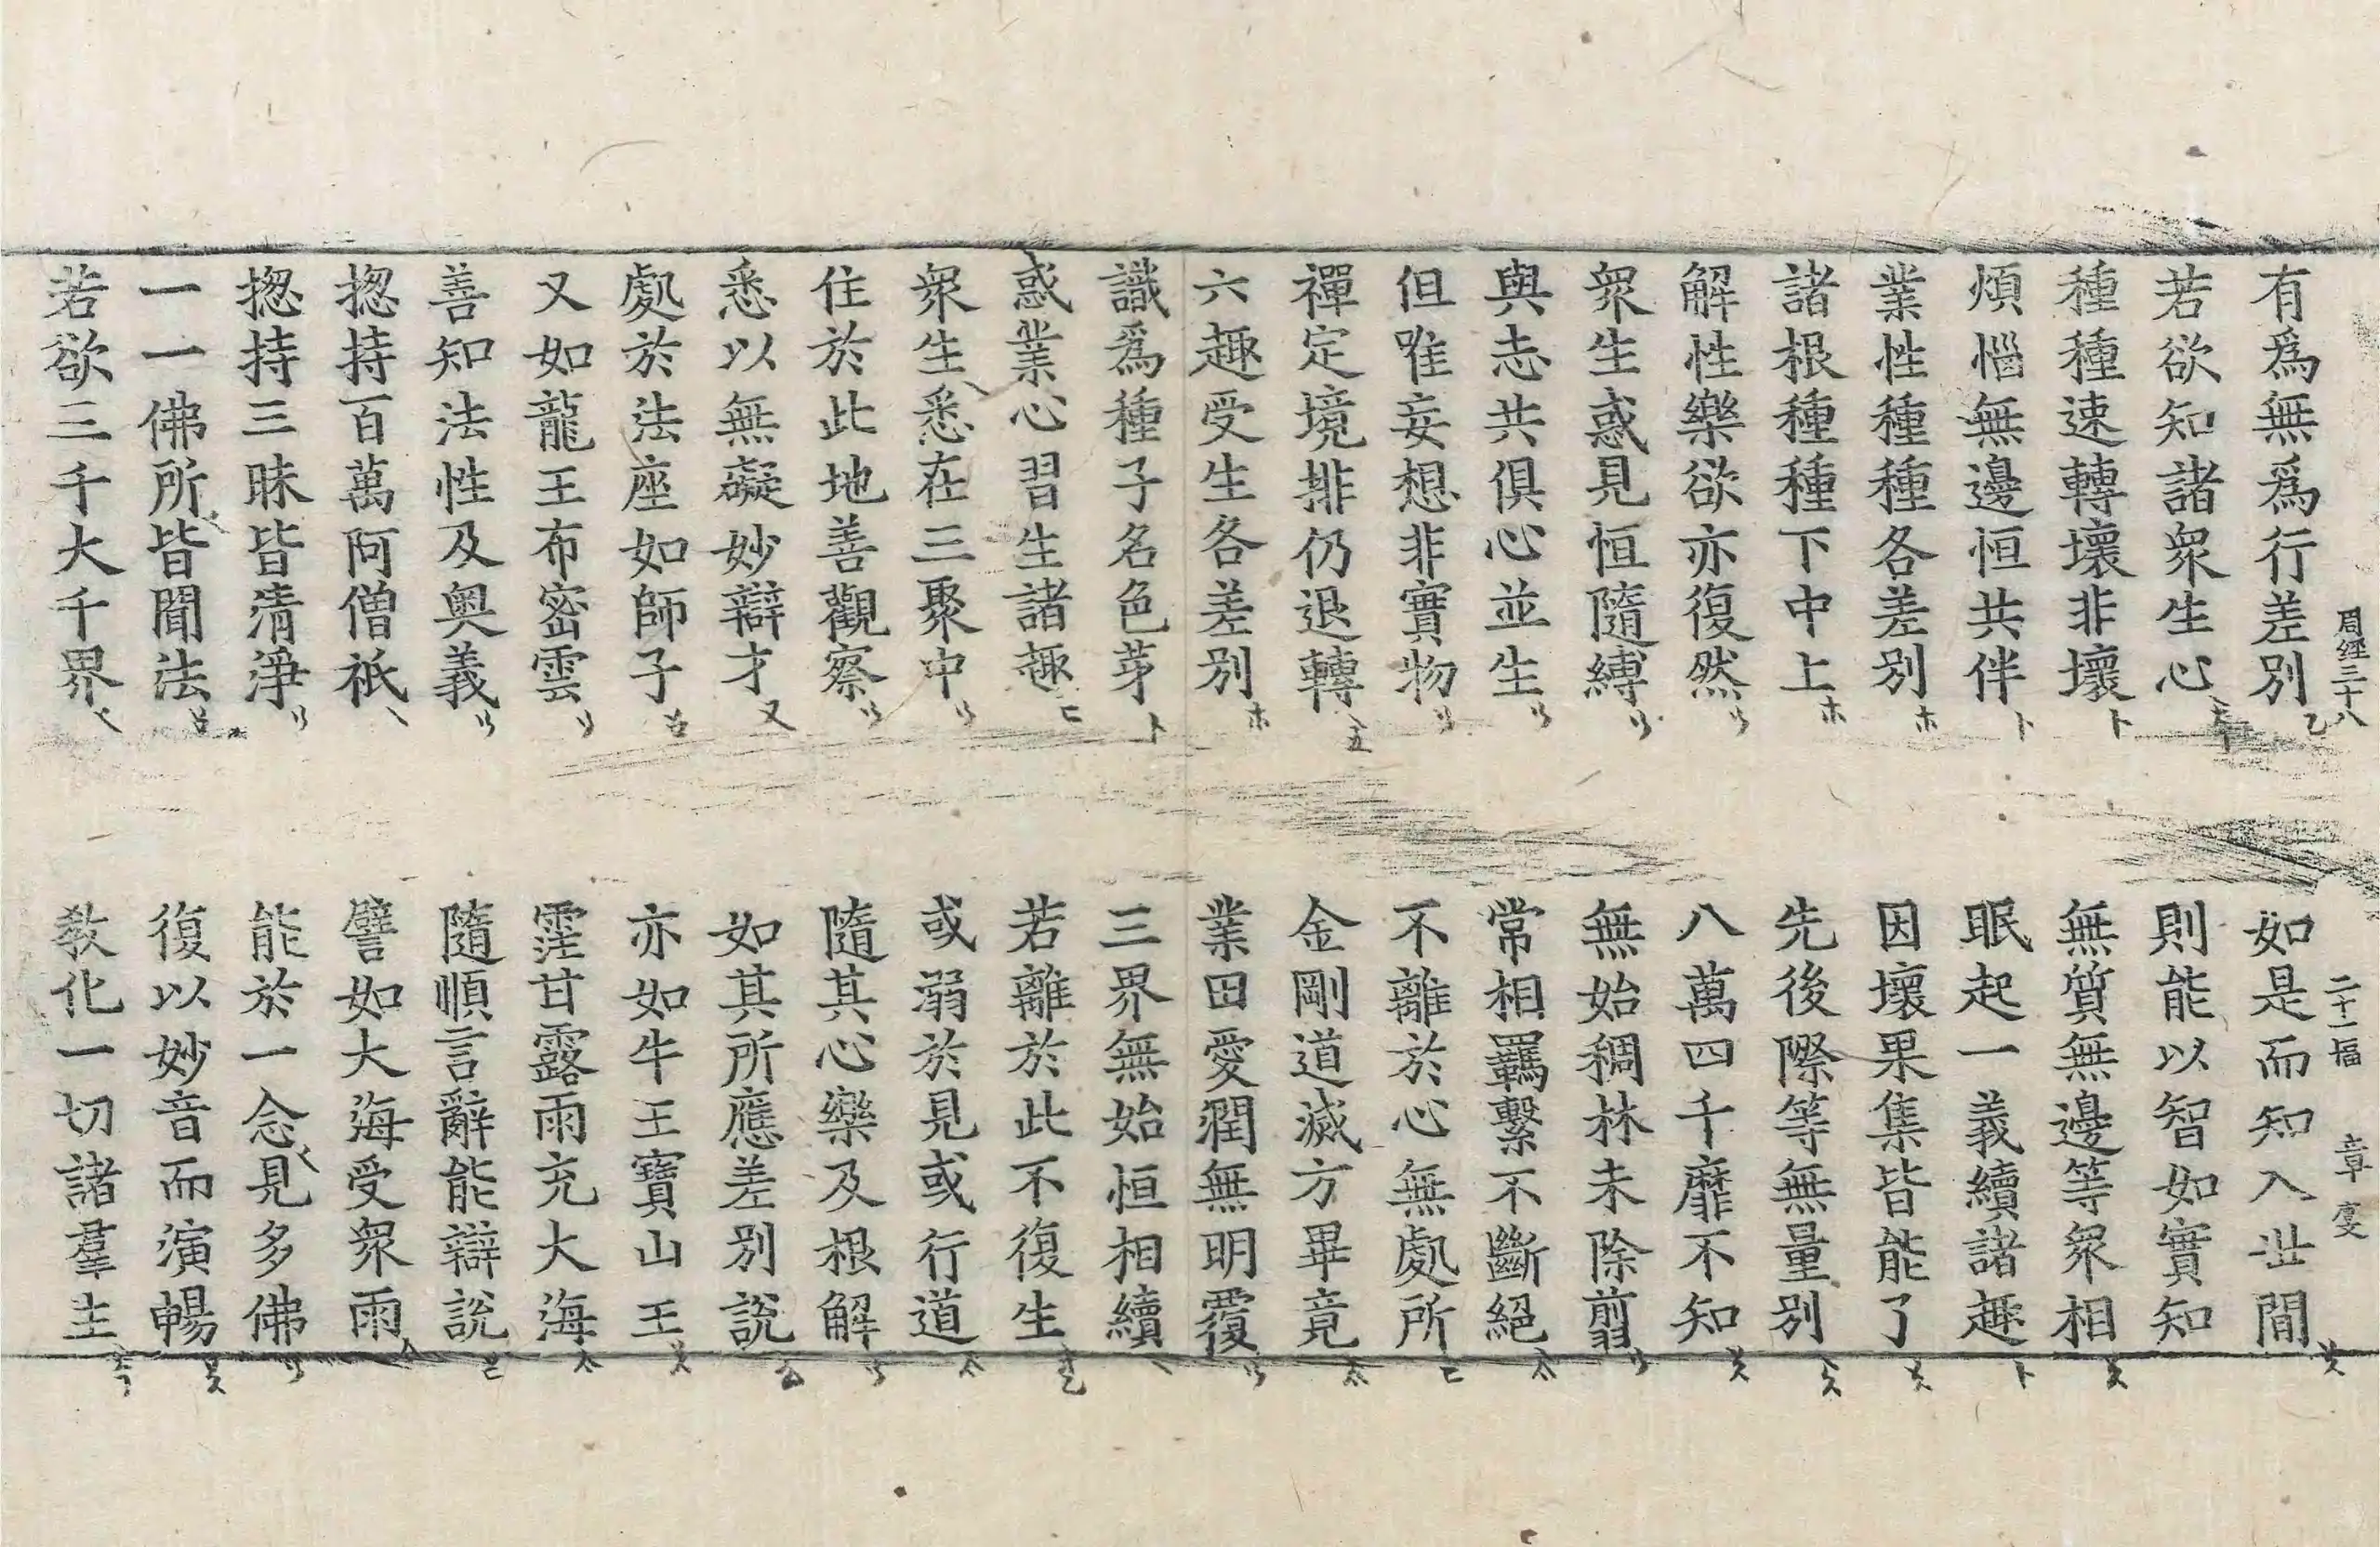 周經三十八 二十一幅 章
有爲無爲行差別 如是而知入世間
若欲知諸衆生心 則能以智如實知
種種速轉壞非壞 無質無邊等衆相
煩惱無邊恒共伴 眠起一義續諸趣
業性種種各差別 因壞果集皆能了
諸根種種下中上 先後際等無量別
解性樂欲亦復然 八萬四千靡不知
衆生惑見恒隨縛 無始稠林未除翦
與志共俱心並生 常相羈繫不斷絕
但唯妄想非實物 不離於心無處所
禪定境排仍退轉 金剛道滅方畢竟
六趣受生各差別 業田愛潤無明覆
識爲種子名色芽 三界無始恒相續
惑業心習生諸趣 若離於此不復生
衆生悉在三聚中 或溺於見或行道
住於此地善觀察 隨其心樂及根解
悉以無礙妙辯才 如其所應差別說
處於法座如師子 亦如牛王寶山王
又如龍王布密雲 霔甘露雨充大海
善知法性及奧義 隨順言辭能辯說
揔持百萬阿僧祇 譬如大海受衆雨
揔持三昧皆清淨 能於一念見多佛
一一佛所皆聞法 復以妙音而演暢
若欲三千大千界 教化一切諸羣生